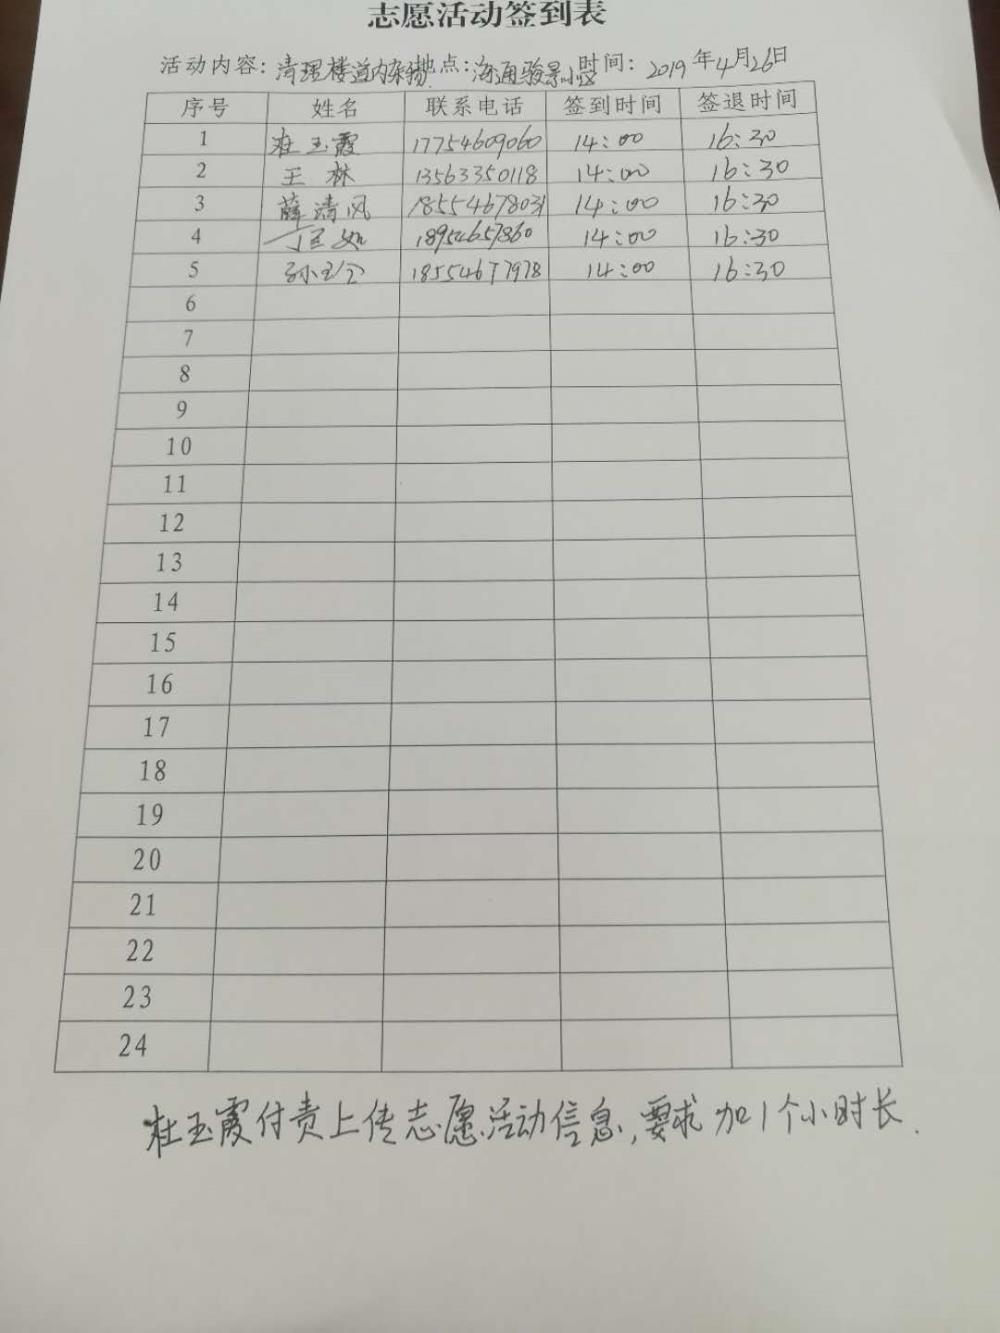 志愿活动签到表
活动内容：清理楼道内杂物 地点：海通骏景小区 时间：2019年4月26日
序号 姓名 联系电话 签到时间 签退时间
1 杜玉霞 17754609060 14:00 16:30
2 王林 13563350118 14:00 16:30
3 薛清风 18554678031 14:00 16:30
4 18954657860 14:00 16:30
5 18554677978 14:00 16:30
6
7
8
9
10
11
12
13
14
15
16
17
18
19
20
21
22
23
24
杜玉霞付责上传志愿活动信息,要求加1个小时长.